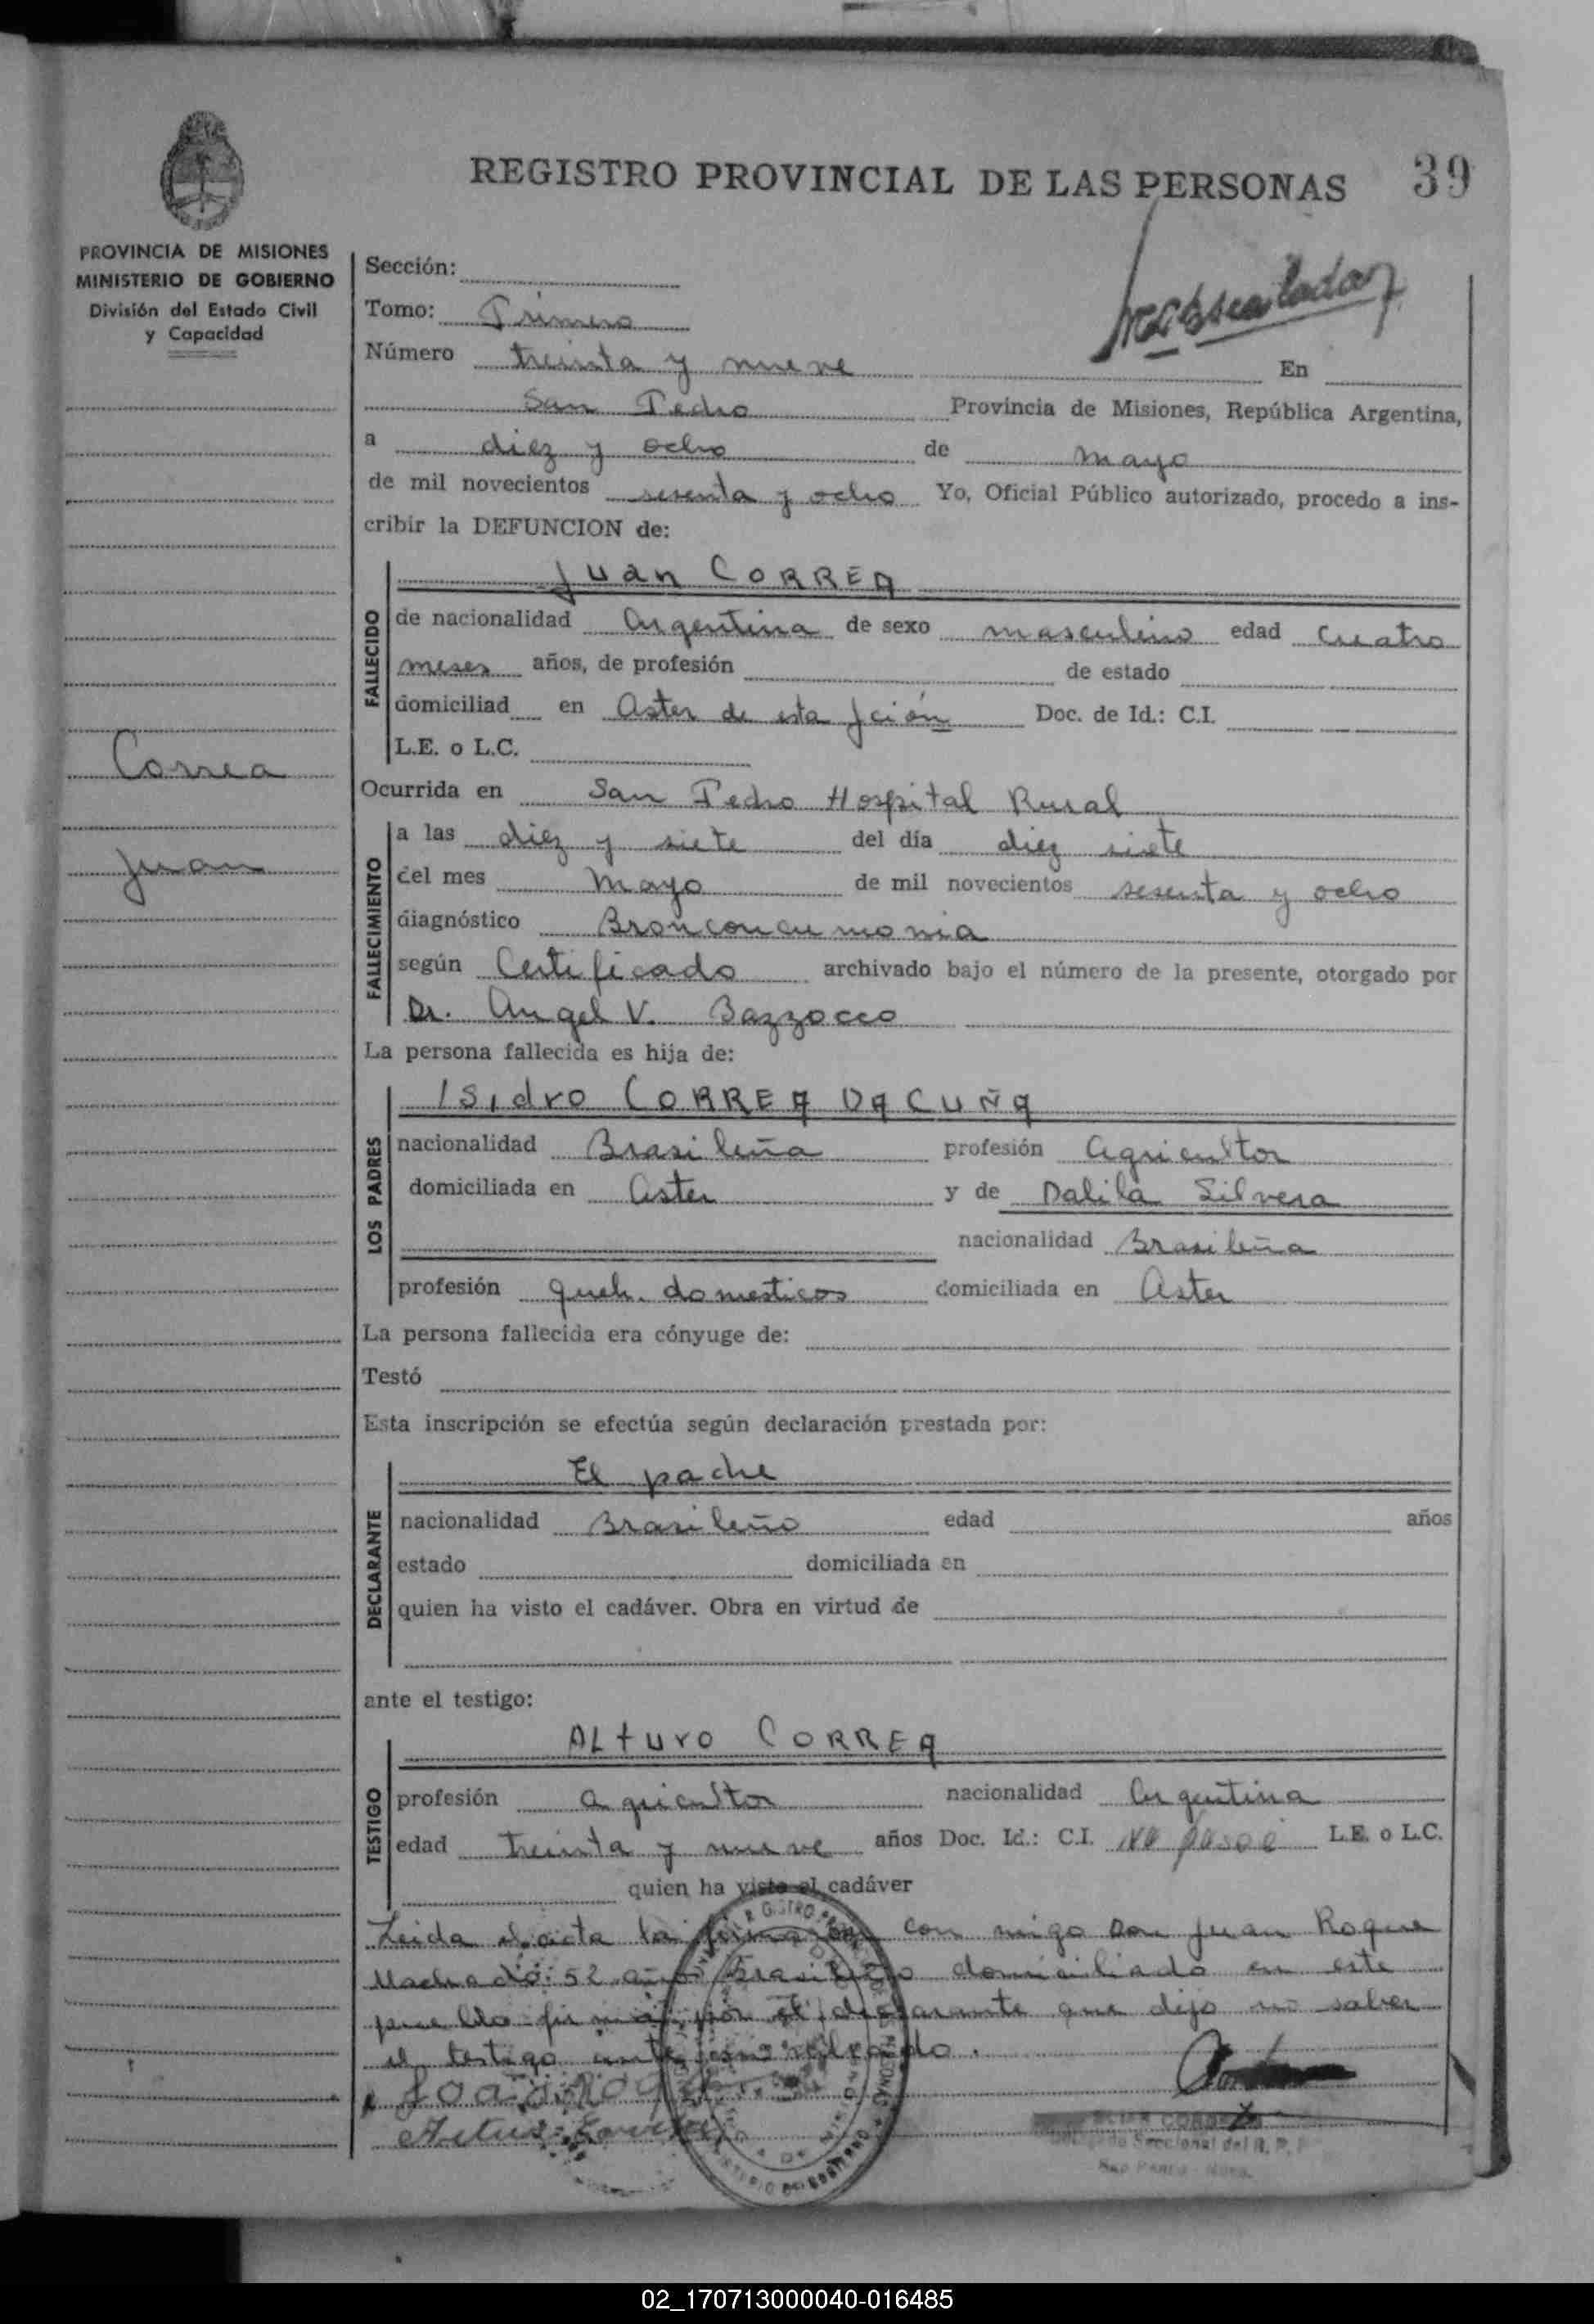 REGISTRO PROVINCIAL DE LAS PERSONAS 39
PROVINCIA DE MISIONES
MINISTERIO DE GOBIERNO
División del Estado Civil
y Capacidad
Correa
Juan
Sección:
Tomo: Primero
Número treinta y nueve En
San Pedro Provincia de Misiones, República Argentina,
a diez y ocho de mayo
de mil novecientos sesenta y ocho Yo, Oficial Público autorizado, procedo a ins-
cribir la DEFUNCION de:
Juan CORREA
FALLECIDO
de nacionalidad Argentina de sexo masculino edad cuatro
meses años, de profesión de estado
domiciliad en Aster de esta Jción Doc. de Id.: C.I.
L.E. o L.C.
Ocurrida en San Pedro Hospital Rural
FALLECIMIENTO
a las diez y siete del día diez siete
del mes Mayo de mil novecientos sesenta y ocho
diagnóstico Bronconeumonia
según Certificado archivado bajo el número de la presente, otorgado por
Dr. Angel V. Bazzocco
La persona fallecida es hija de:
Isidro CORREA DA CUÑA
LOS PADRES
nacionalidad Brasileña profesión agricultor
domiciliada en Aster y de Dalila Silvera
nacionalidad Brasileña
profesión queh. domesticos domiciliada en Aster
La persona fallecida era cónyuge de:
Testó
Esta inscripción se efectúa según declaración prestada por:
El padre
DECLARANTE
nacionalidad Brasileño edad años
estado domiciliada en
quien ha visto el cadáver. Obra en virtud de
ante el testigo:
ALturo CORREA
TESTIGO
profesión agricultor nacionalidad Argentina
edad treinta y nueve años Doc. Id.: C.I. No posee L.E. o L.C.
quien ha visto el cadáver
Leida el acta la firmaron con migo Don Juan Roque
Machado: 52 años Brasileño domiciliado en este
pueblo firma por el declarante que dijo no saber
el testigo ante
02_170713000040-016485